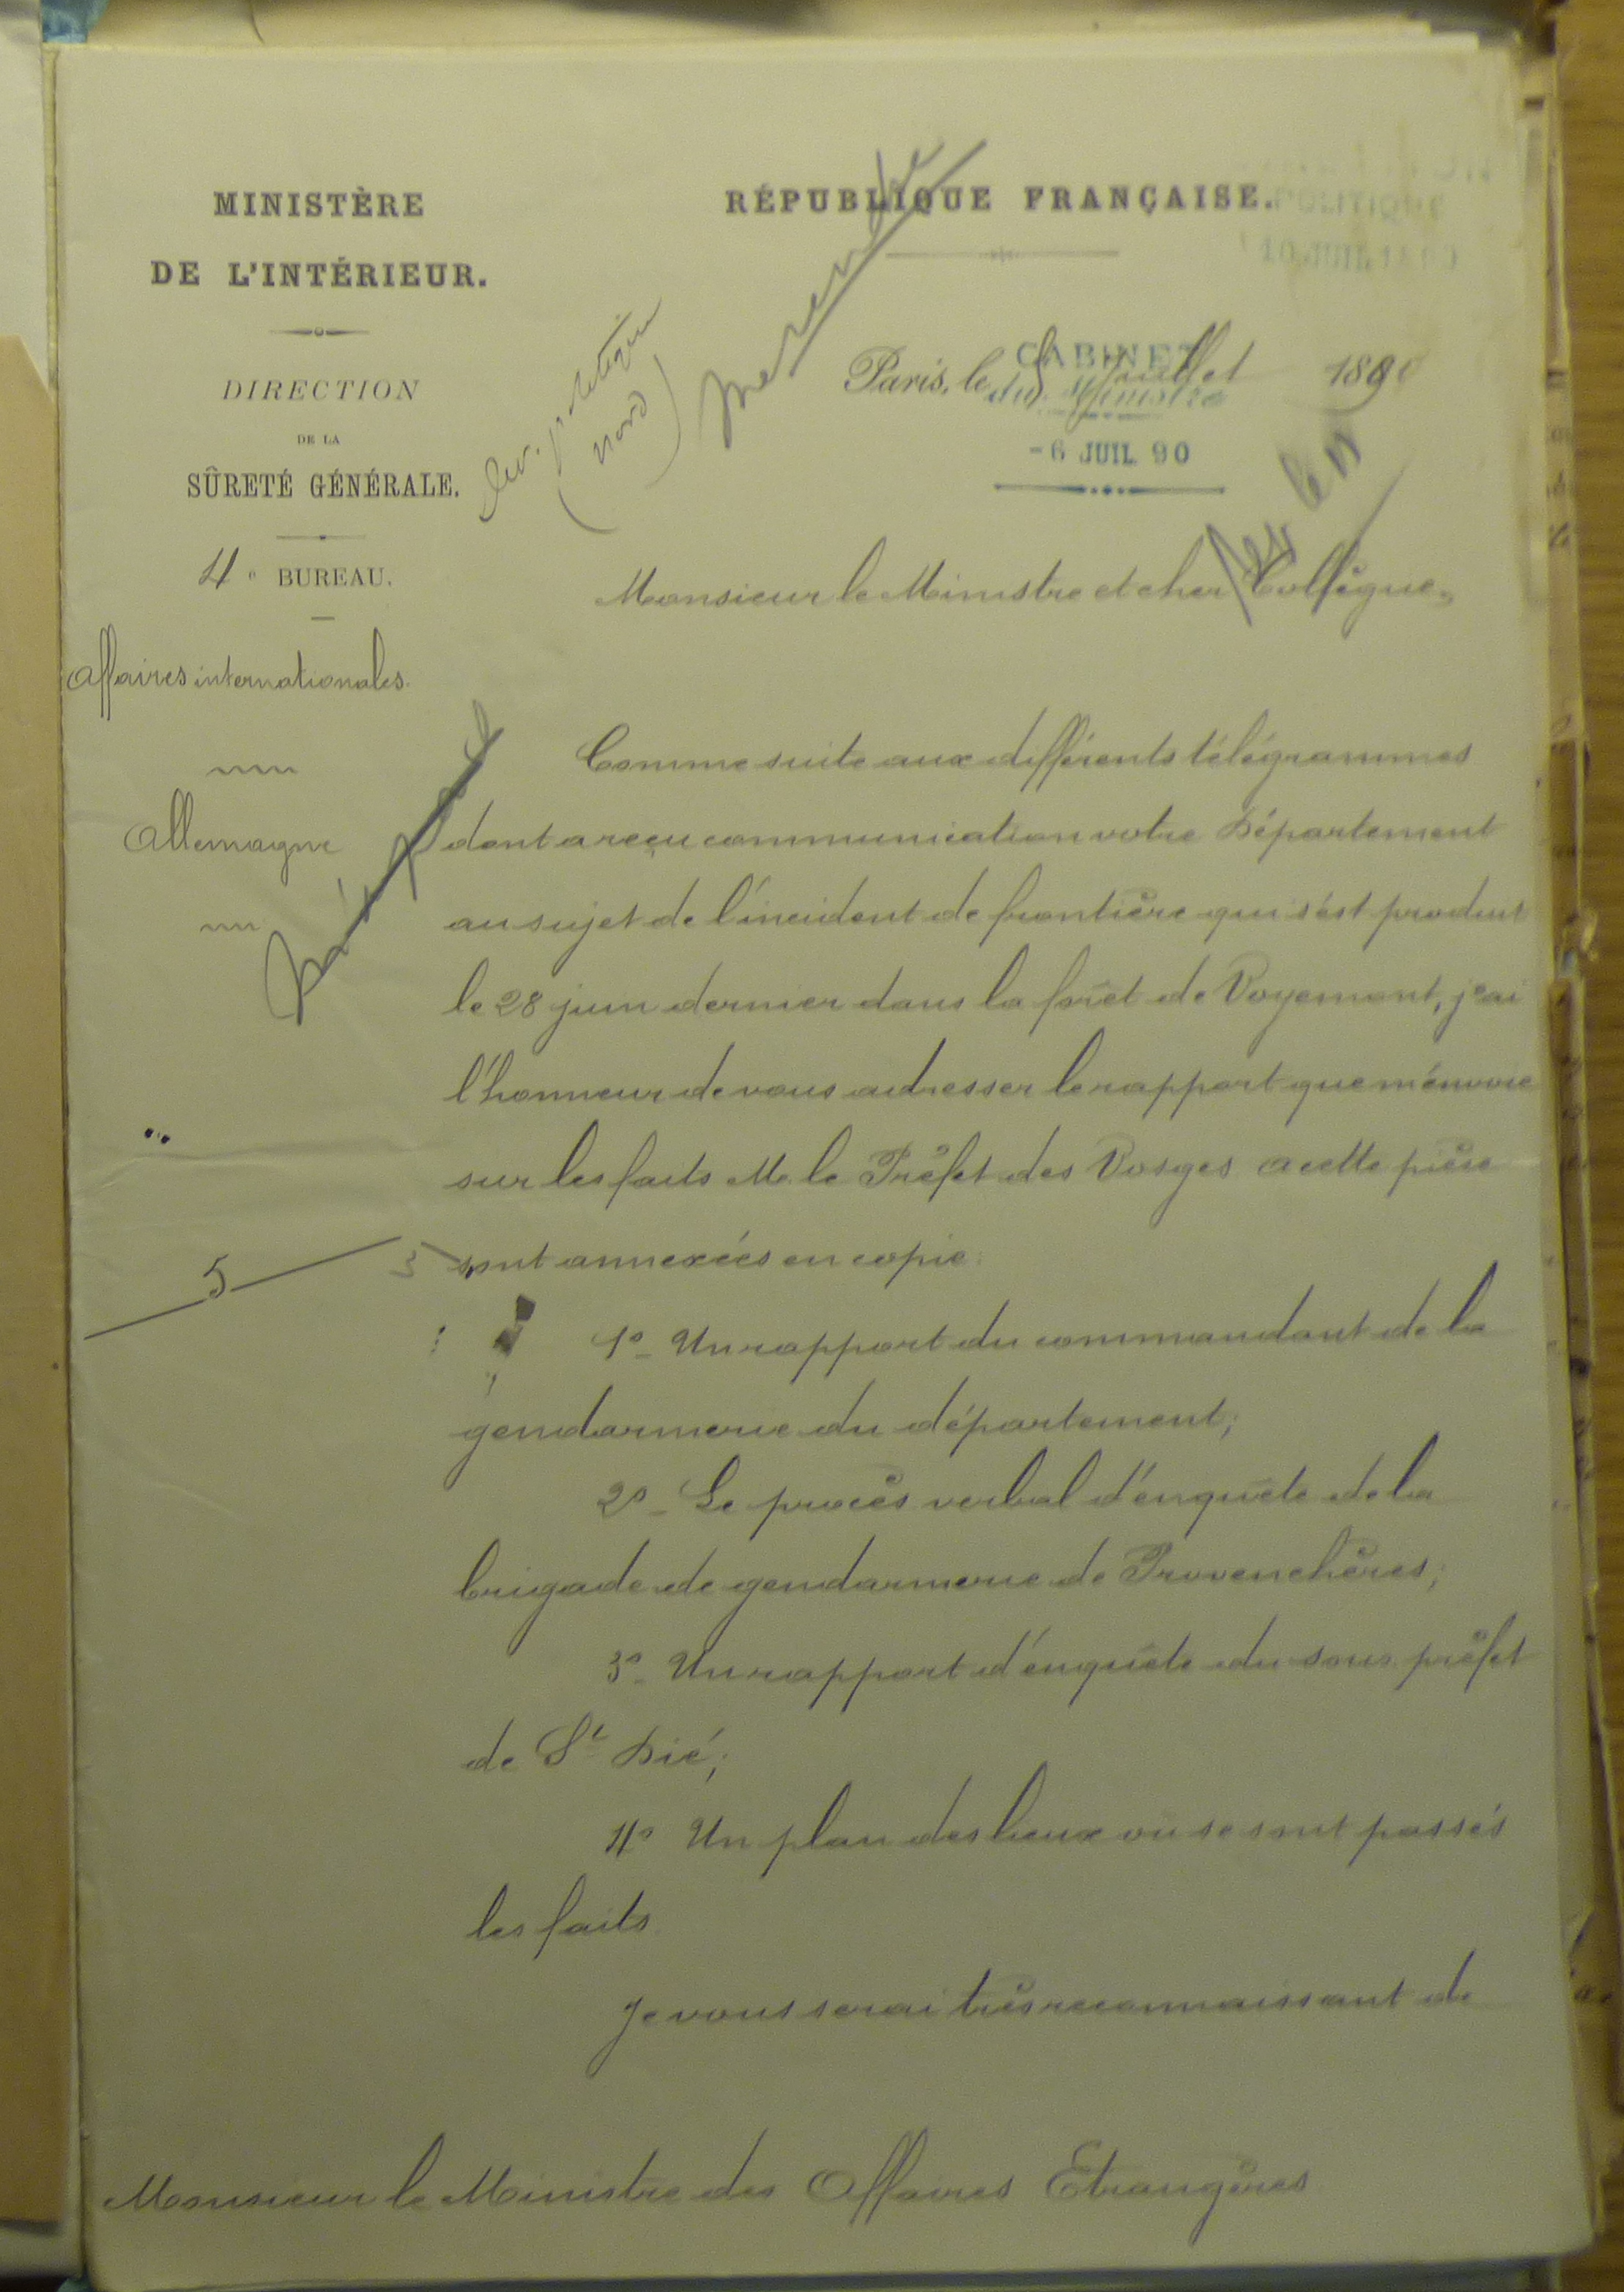 MINISTÈRE
DE L'INTÉRIEUR.
DIRECTION
DE LA
SÛRETÉ GÉNÉRALE.
4e BUREAU.
Affaires internationales.
Allemagne
5
RÉPUBLIQUE FRANÇAISE.
POLITIQUE
10 JUIL 1890
Dir. politique
(Nord)
Paris, le Juillet 1890
CABINET
du Ministre
-6 JUIL 90
Monsieur le Ministre et cher Collègue,
Comme suite aux différents télégrammes
dont a reçu communication votre Département
au sujet de l'incident de frontière qui s'est produit
le 28 juin dernier dans la forêt de Voyemont, j'ai
l'honneur de vous adresser le rapport que m'envoie
sur les faits M. le Préfet des Vosges à cette pièce
sont annexées en copie:
1o_ Un rapport du commandant de la
gendarmerie du département;
2o_ Le procès verbal d'enquête de la
brigade de gendarmerie de Provenchères;
3o_ Un rapport d'enquête du sous préfet
de St Dié;
4o Un plan des lieux où se sont passés
les faits.
Je vous serai très reconnaissant de
Monsieur le Ministre des Affaires Etrangères